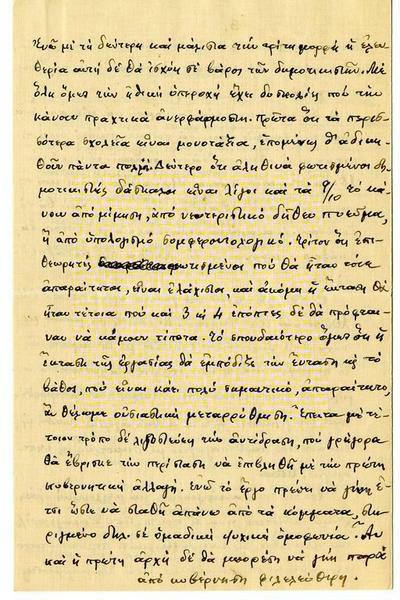 Ἐνῶ μὲ τὴ δεύτερη καὶ μάλιστα τὴν τρίτη μορφὴ ἡ ἐλευ
θερία αὐτὴ δὲ θὰ ἰσχύη σὲ βάρος τῶν δημοτικιστῶν. Μὲ
ὅλη ὅμως τὴν ἠθικὴ ὑπεροχὴ ἔχει δυσκολίες ποὺ τὴν
κάνουν πρακτικὰ ἀνεφάρμοστη. Πρῶτα ὅτι τὰ περισ-
σότερα σχολεῖα εἶναι μονοτάξια, ἑπομένως θ' ἀδικη-
θοῦν πάντα πολλοί. Δεύτερο ὅτι ἀληθινὰ φωτισμένοι δη-
μοτικιστὲς δάσκαλοι εἶναι λίγοι καὶ τὰ 9/10 τὸ κά-
νουν ἀπὸ μίμηση, ἀπὸ νεωτεριστικὸ δῆθεν πνεῦμα,
ἢ ἀπὸ ὑπολογισμὸ συμφεροντολογικό. Τρίτον ὅτι ἐπι-
θεωρητὲς φωτισμένοι ποὺ θὰ ἦταν τότε
ἀπαραίτητοι, εἶναι ἐλάχιστοι, καὶ ἀκόμη ἡ ἔκταση θὰ
ἦταν τέτοια ποὺ καὶ 3 ἢ 4 ἐπόπτες δὲ θὰ πρόφται-
ναν νὰ κάμουν τίποτα. Τὸ σπουδαιότερο ὅμως ὅτι ἡ
ἔκταση τῆς ἐργασίας θὰ ἐμπόδιζε τὴν ἔνταση κὶ τὸ
βάθος, ποὺ εἶναι κάτι πολὺ σημαντικό, ἀπαραίτητο,
ἂν θέλουμε οὐσιαστικὴ μεταρρύθμιση. Ἔπειτα μὲ τέ-
τοιον τρόπο δὲ τὴν ἀντίδραση, ποὺ γρήγορα
θὰ ἔβρισκε τὴν περίσταση νὰ ἐπιβληθῆ μὲ τὴν πρώτη
κυβερνητικὴ ἀλλαγή. Ἐνῶ τὸ ἔργο πρέπει νὰ γίνη ἔ-
τσι ὥστε νὰ σταθῆ ἀπάνω ἀπὸ τὰ κόμματα, στη-
ριγμένο δηλ. σὲ ὁμαδικὴ ψυχικὴ ὁμοφωνία. Ἂν
καὶ ἡ πρώτη ἀρχὴ δὲ θὰ μπορέση νὰ γίνη παρὰ
ἀπὸ κυβέρνηση φιλελεύθερη.